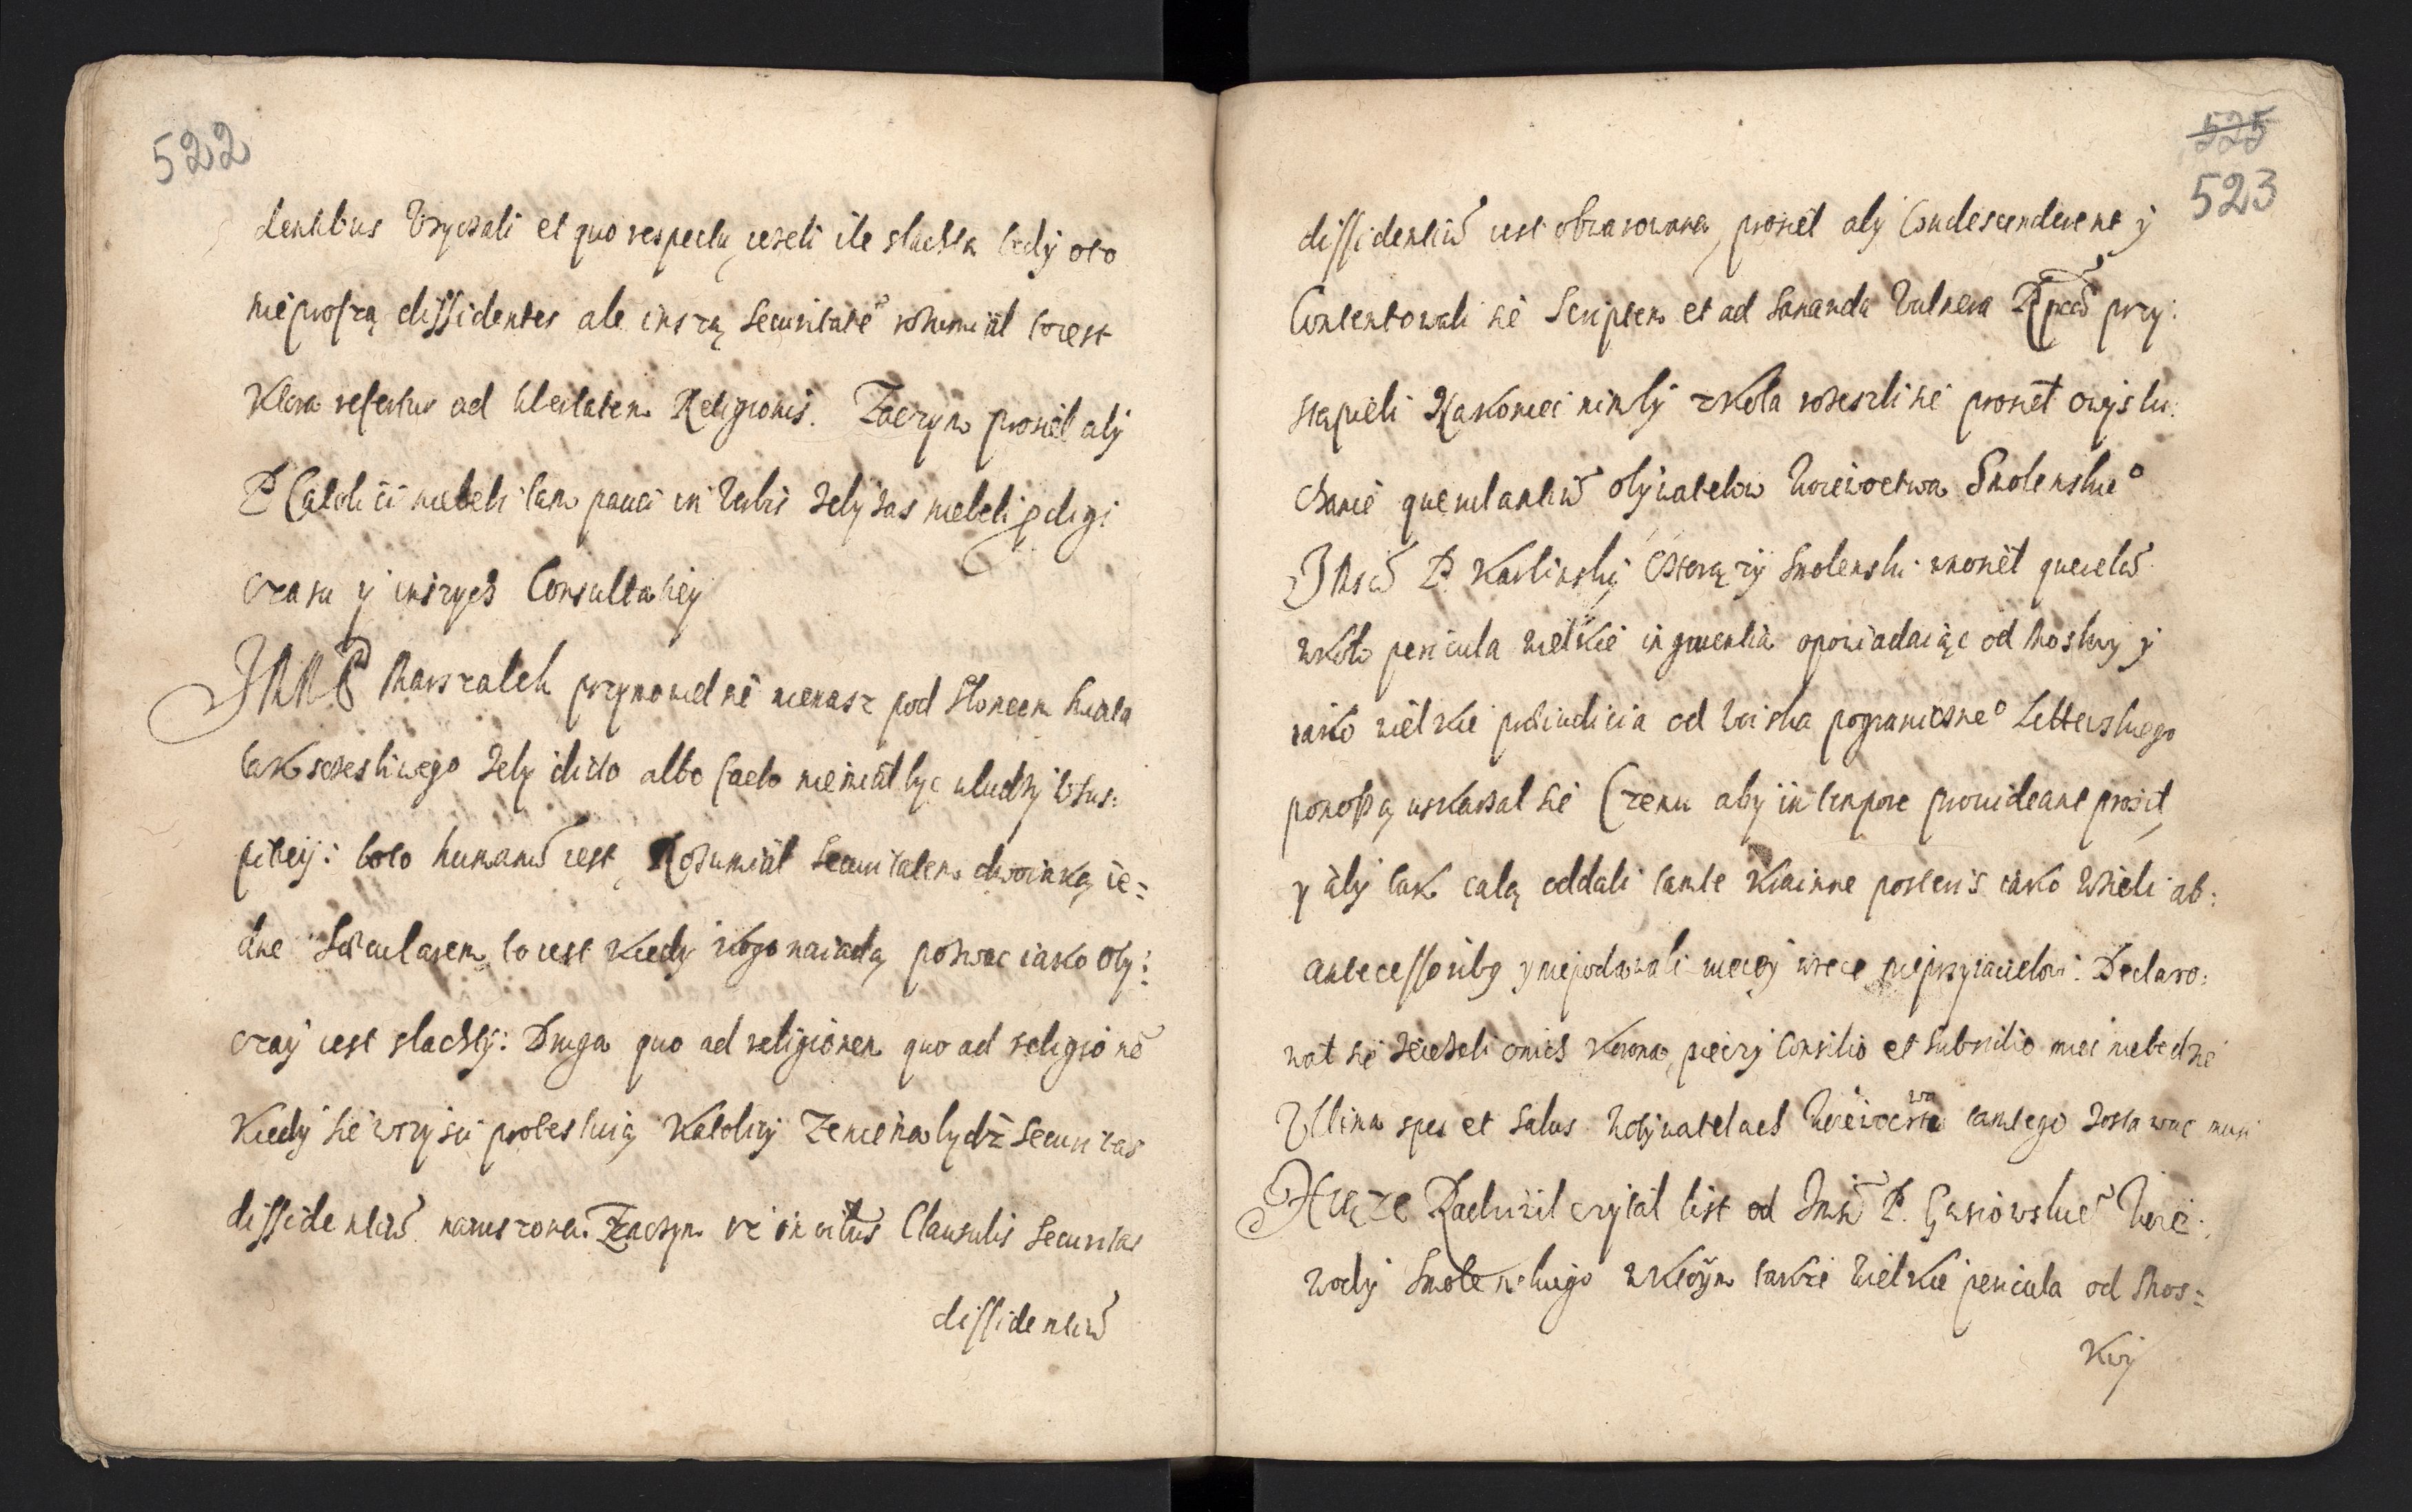 522
dentibus Vzywali et quo respectu, jezeli ile slachta tedy oto
nie proszą dissidentes ale inszą securitatē rozumiał to jest
Ktora refertur ad libertatem Religionis. Zaczym prosiel aby
P Catolicii niebeli tam pauci in Verbis zeby zas niebeli prodigi
czasu y inszych Consultaciey
JMM P Marszalek przymowiel sie nienasz pod sloncem swiata
tak sczesliwego zeby dicto albo facto niemiał byc uludzi w sus:
piciey: bo to humanū iest, Rozumiał securitatem dwoinką ie=
dne Sæcularem to iest kiedy kogo naiadą pozwac iako oby:
czay iest slachty: Druga quo ad religionem quo ad religionē
Kiedy sie wszysci protestuią Katolicy ze niema bydz securitas
dissidentiū naruszona. Zaczym w inszych Clausulis securitas
dissidentiū
525
523
dissidentiū iest obwarowana, prosiel aby Condescenderent y
Contentowali sie Scriptem et ad sananda Vulnera Rpcæ przy:
stąpieli Nakoniec nimby zkoła rozeszli sie prosieł o wyslu:
chanie querulantiū obywatelow Woiewoctwa Smolenskieo
JMsc P. Karlinsky Chorąży Smolenski wnosiel querelas
wkoło pericula wielkie ingruentia opowiadaiąc od Moskwy y
iako wielkie præiudicia od Woiska pogranicznego Litterskiego
ponoszą uskarzał sie Czemu aby in tempore provideant prosił,
y aby tak całą oddali tamte Krainne posteris iako wzieli ab:
antecessoribus y niepodawali wiecey w rece nieprzyiacielowi. Declaro:
wał sie jezeli omnis Korona, pieczy Consilio et subsidio miec niebedzie
Vltima spes et salus w obywatelach Woiewoctwa tamtego zostawac musi
Xiąze Radziwil czytał list od JMsci P. Gąsiowskieo Woie:
wody Smolenskiego w ktorym takze wielkie pericula od Mos=
kwy